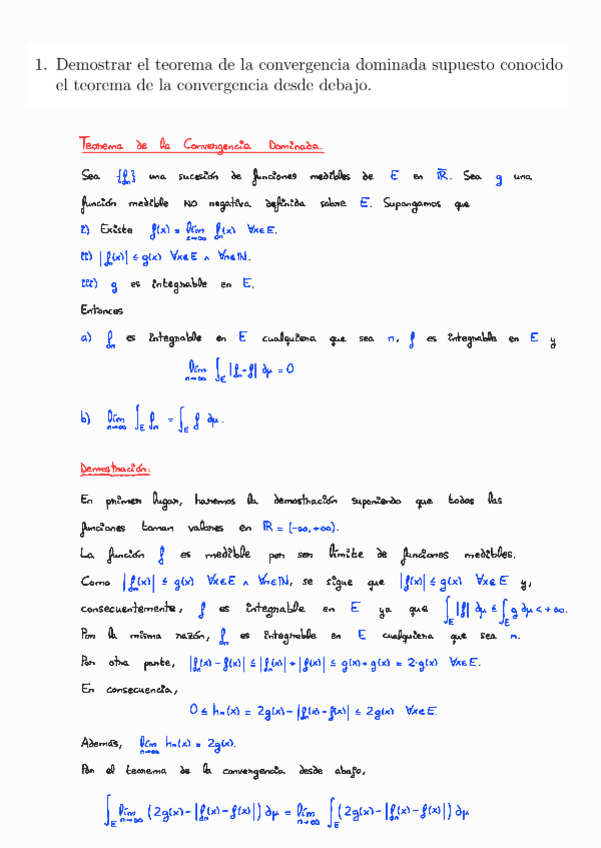 1. Demostrar el teorema de la convergencia dominada supuesto conocido
el teorema de la convergencia desde debajo.
Teorema de la Convergencia Dominada.
Sea {fₙ} una sucesión de funciones medibles de E en ℝ̅. Sea g una
función medible NO negativa definida sobre E. Supongamos que
i) Existe f(x) = lim_{x→∞} fₙ(x) ∀x∈E.
ii) |fₙ(x)| ≤ g(x) ∀x∈E ∧ ∀n∈ℕ.
iii) g es integrable en E.
Entonces
a) fₙ es integrable en E cualquiera que sea n, f es integrable en E y
lim_{n→∞} ∫_E |fₙ-f| dμ = 0
b) lim_{n→∞} ∫_E fₙ = ∫_E f dμ.
Demostración:
En primer lugar, haremos la demostración suponiendo que todas las
funciones toman valores en ℝ = (-∞,+∞).
La función f es medible por ser límite de funciones medibles.
Como |fₙ(x)| ≤ g(x) ∀x∈E ∧ ∀n∈ℕ, se sigue que |f(x)| ≤ g(x) ∀x∈E y,
consecuentemente, f es integrable en E ya que ∫_E |f| dμ ≤ ∫_E g dμ < +∞.
Por la misma razón, fₙ es integrable en E cualquiera que sea n.
Por otra parte, |fₙ(x) - f(x)| ≤ |fₙ(x)| + |f(x)| ≤ g(x) + g(x) = 2·g(x) ∀x∈E.
En consecuencia,
0 ≤ hₙ(x) = 2g(x) - |fₙ(x) - f(x)| ≤ 2g(x) ∀x∈E.
Además, lim_{n→∞} hₙ(x) = 2g(x).
Por el teorema de la convergencia desde abajo,
∫_E lim_{n→∞} (2g(x) - |fₙ(x) - f(x)|) dμ = lim_{n→∞} ∫_E (2g(x) - |fₙ(x) - f(x)|) dμ